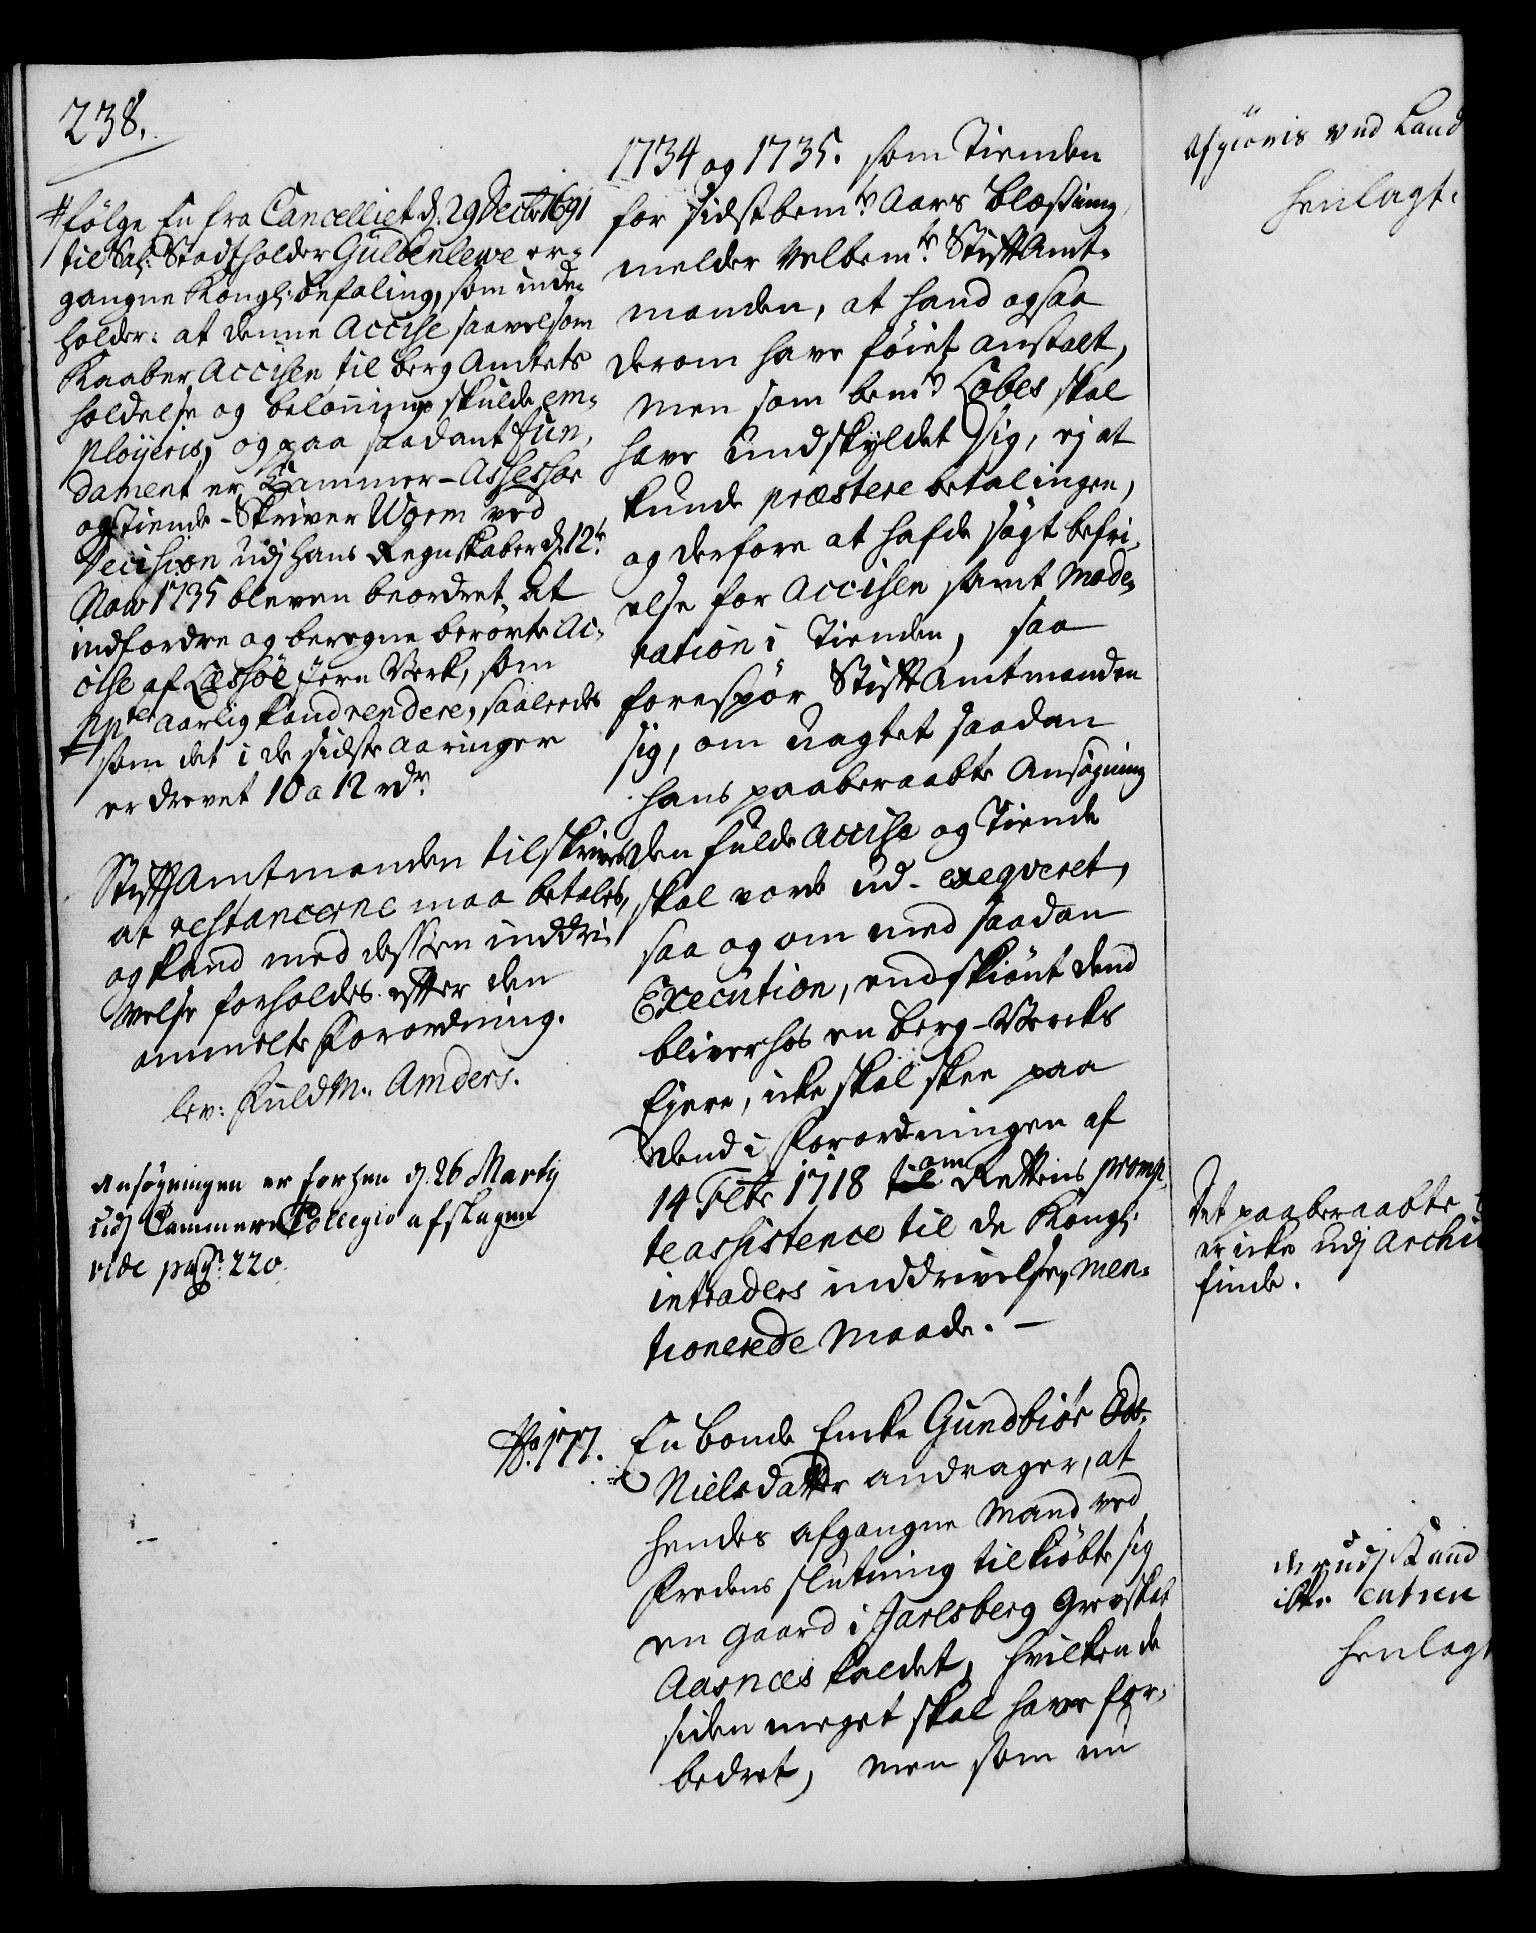 238.
# følge En fra Cancelliet d. 29 Dectr 1691
til Sal: Stadtholder Güldenlewe er-
gangne Kongl: befaling, som inde-
holder: at denne Accise saavelsom
Kaaber Accisen til berg Amtets
holdelse og belønning skulde em-
ployeris, og paa saadant Fun-
dament er Kammer-Assessor
og Tiende-Skriver Worm ved
Decision udj hans Regnskaber d. 12te
Nov 1735 bleven beordret at
indfordre og beregne berørte Ac-
cise af Læssøe Jern Verk, som
aarlig kand rendere, saaleedes
som det i de sidste aaringer
er drevet 10 a 12 rdr.
StiftAmtmanden tilskrives
at restancerne maa betales,
og kand med dessen inddri-
velse forholdes efter den
ommelte Forordning.
lev: Fuldm: Amders.
Ansøgningen er forhen d. 26 Martij
udj Cammer Collegio afslagen
vide pag: 220.
1734 og 1735. som Tienden
for sidstbemte Aars blæsning,
melder Velbemte StiftAmt-
manden, at hand ogsaa
derom have føiet anstalt,
men som bemte Cobes skal
have undskyldet sig, ej at
kunde præstere betalingen,
og derfore at hafde søgt befri-
else for Accisen samt Mode-
ration i Tienden, saa
forespør StiftAmtmanden
sig, om uagtet saadan
hans paaberaabte Ansøgning
den fulde Accise og Tiende
skal vorde ud-exeqveret,
saa og om med saadan
Execution, endskiønt dend
bliver hos en Berg-Vercks
Ejere, icke skal skee paa
dend i Forordningen af
14 Febr 1718 til om Rettens promp-
te assistence til de Kongl:
intraders inddrivelse, men-
tionerede Maade. -
No. 177. En bonde Encke Gundbiør
Nielsdatter andrager, at
hendes afgangne Mand ved
Fredens slutning tilkiøbte sig
en gaard i Jarlsberg Grevskab
Aasnæs kaldet, hvilken de
siden meget skal have for-
bedret, men som nu
ved Land
henlagt.
Det paaberaabte
er icke udj Archi
finde.
icke
henlagt